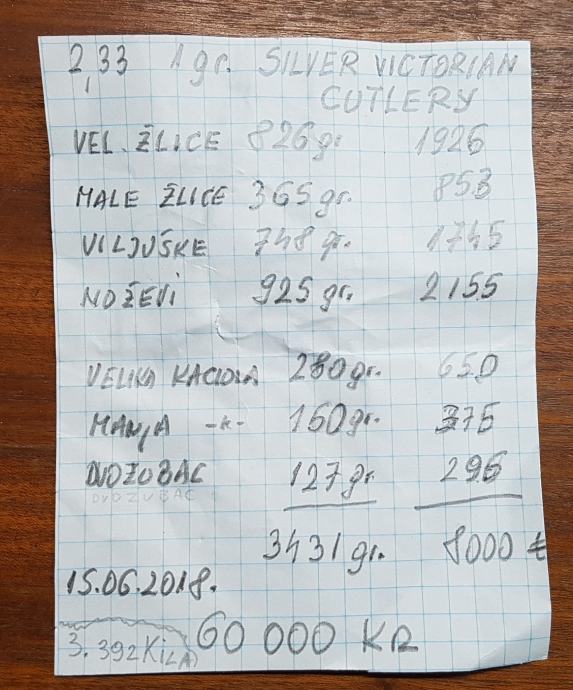 2,33 1 gr. SILVER VICTORIAN
CUTLERY
VEL. ŽLICE 826 gr. 1926
MALE ŽLICE 365 gr. 853
VILJUŠKE 748 gr. 1745
NOŽEVI 925 gr. 2155
VELIKA KACIOLA 280 gr. 650
MANJA -"- 160 gr. 375
DVOZUBAC 127 gr. 296
DVOZUBAC
3431 gr. 8000 €
15.06.2018.
3.392 KILA 60 000 KR